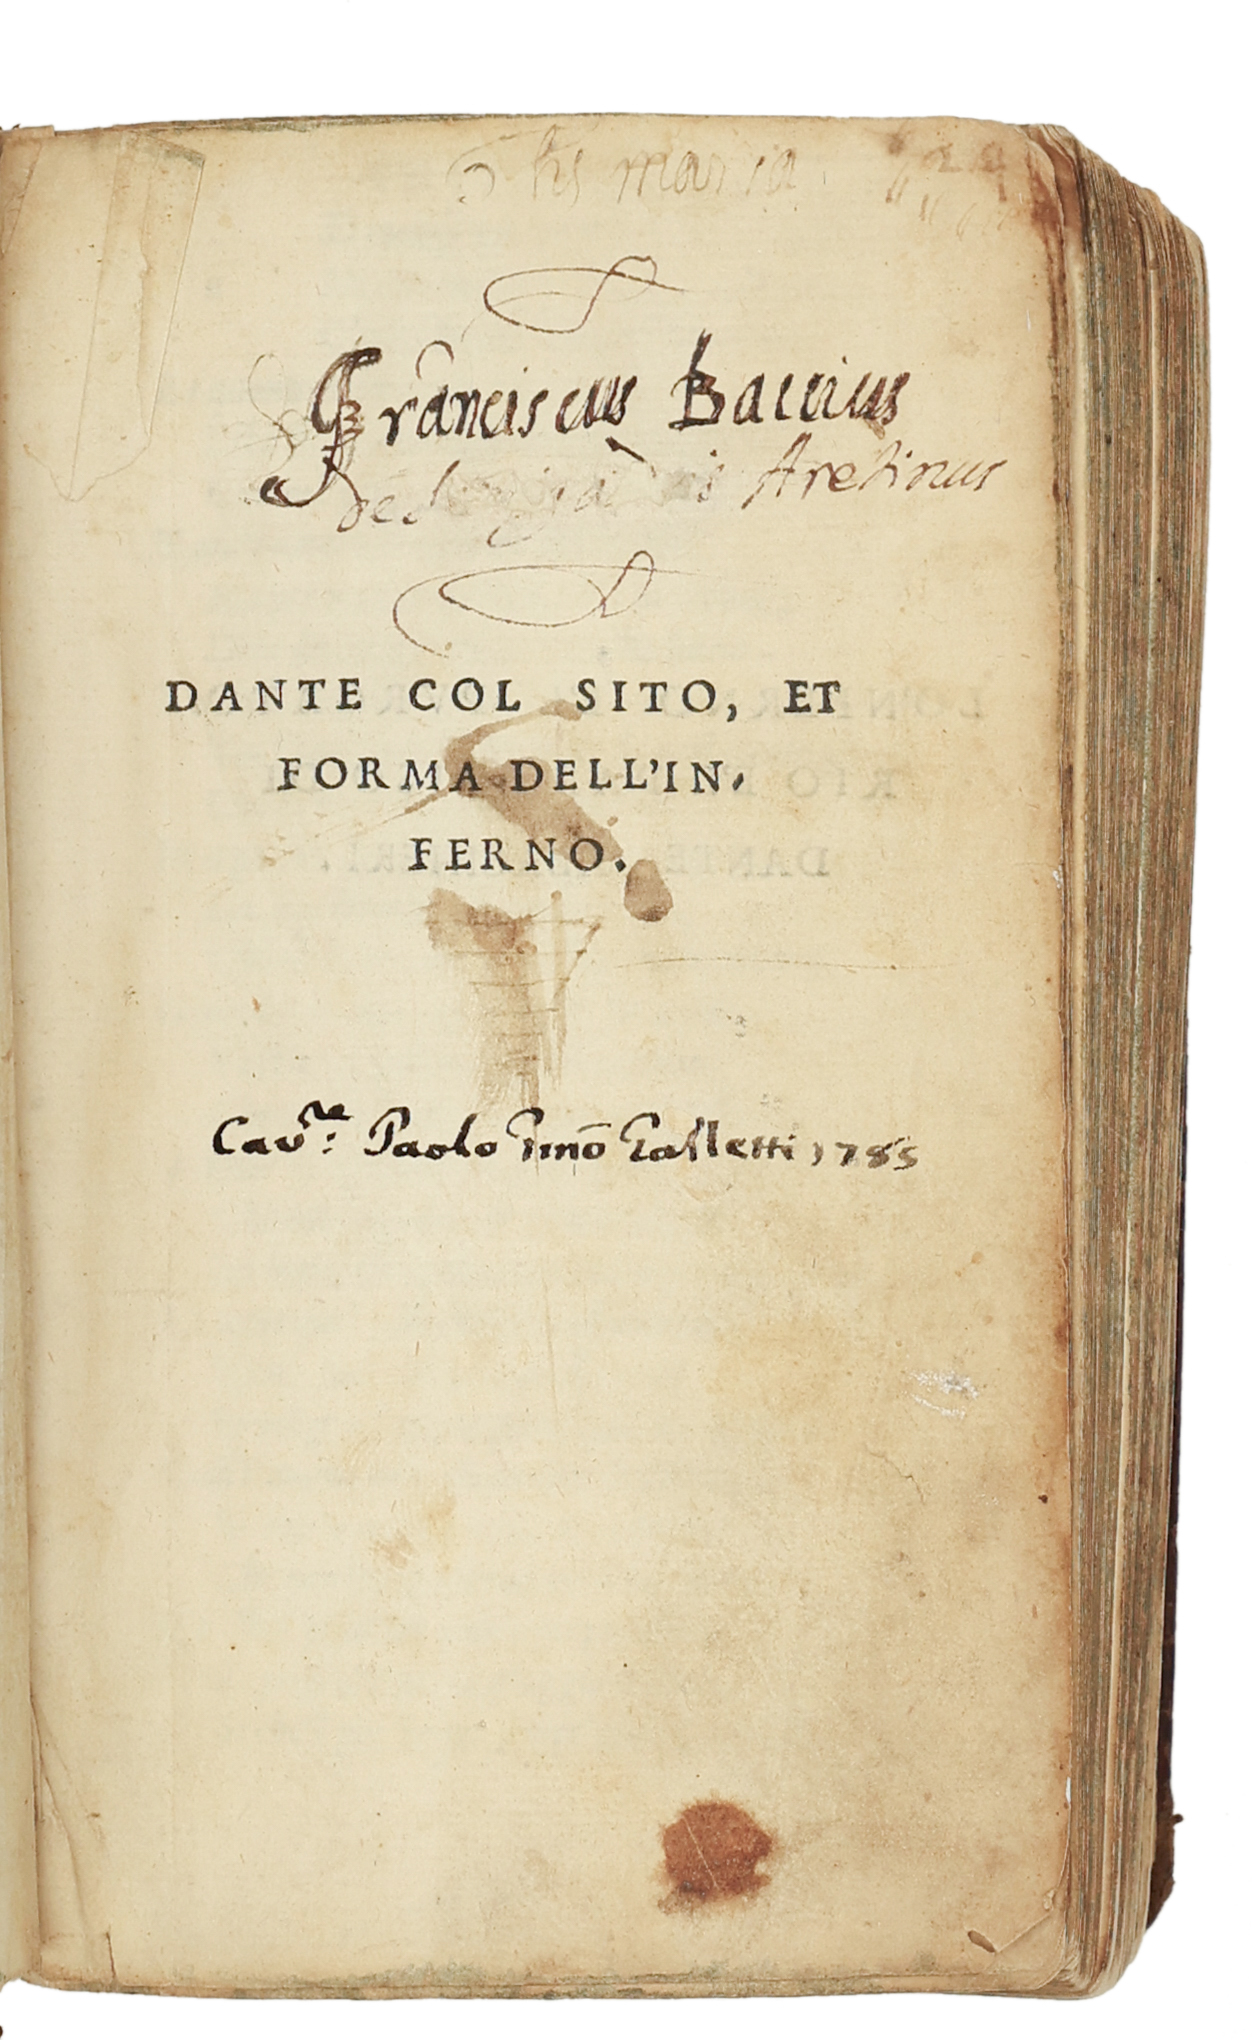 yhs maria
Franciscus Baccius
Aretinus
DANTE COL SITO, ET
FORMA DELL'IN-
FERNO.
Cav.re: Paolo Galletti 1785